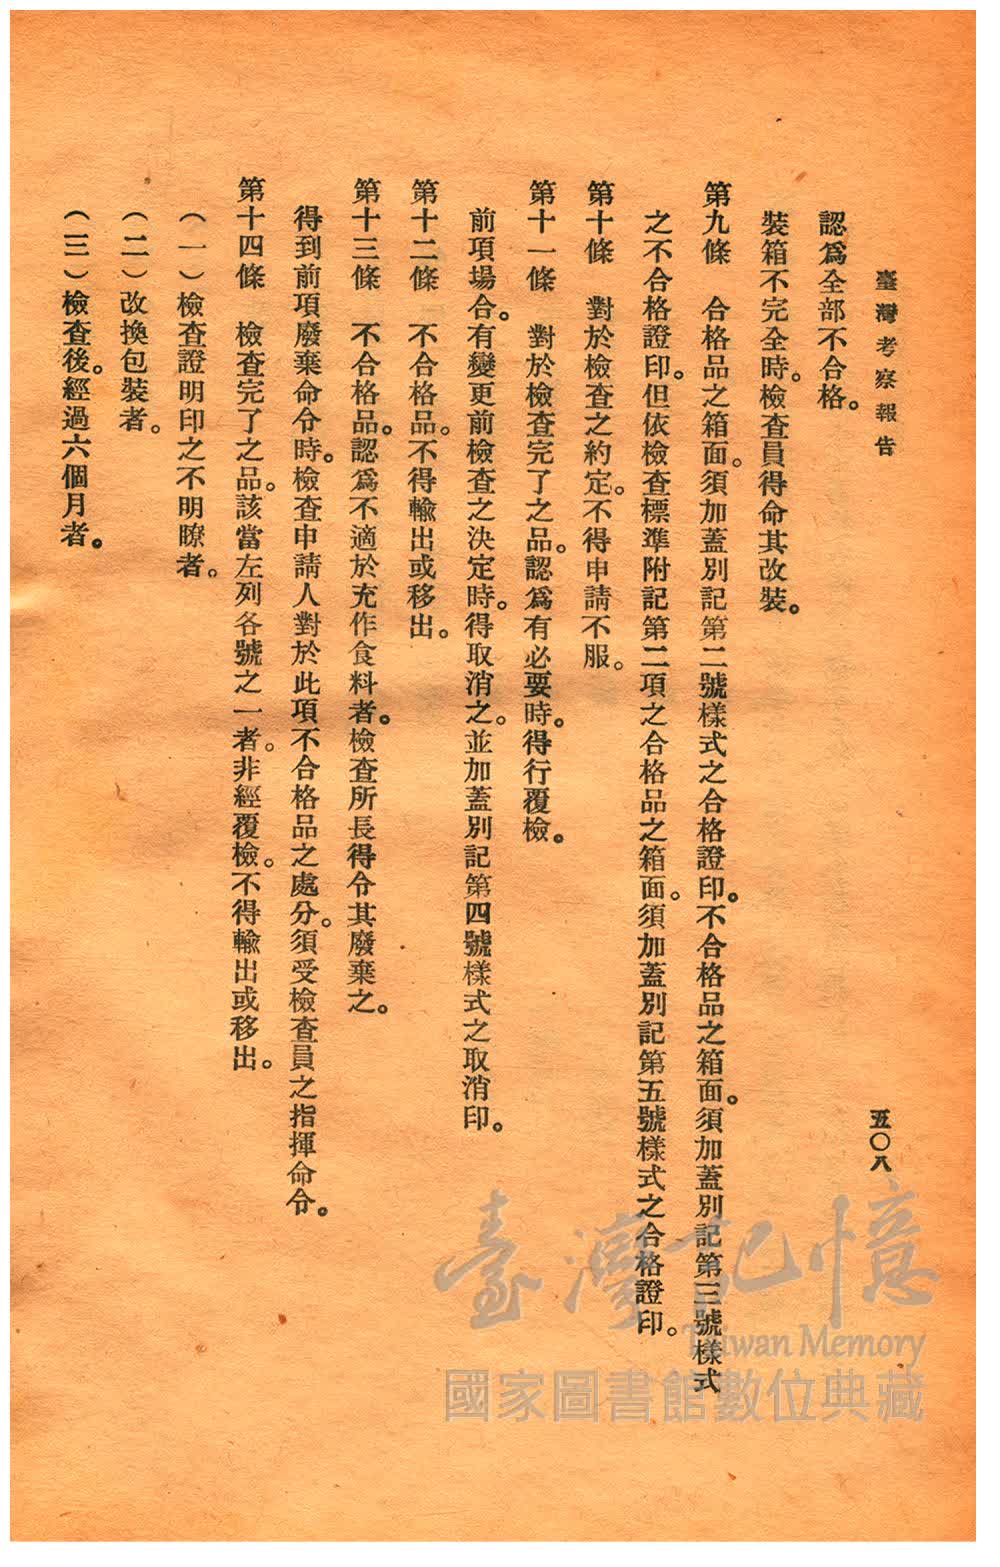 臺灣考察報告
五〇八
認爲全部不合格。
裝箱不完全時。檢查員得命其改裝。
第九條　合格品之箱面。須加蓋別記第二號樣式之合格證印。不合格品之箱面。須加蓋別記第三號樣式
之不合格證印。但依檢查標準附記第二項之合格品之箱面。須加蓋別記第五號樣式之合格證印。
第十條　對於檢查之約定。不得申請不服。
第十一條　對於檢查完了之品。認爲有必要時。得行覆檢。
前項場合。有變更前檢查之決定時。得取消之。並加蓋別記第四號樣式之取消印。
第十二條　不合格品。不得輸出或移出。
第十三條　不合格品。認爲不適於充作食料者。檢查所長得令其廢棄之。
得到前項廢棄命令時。檢查申請人對於此項不合格品之處分。須受檢查員之指揮命令。
第十四條　檢查完了之品。該當左列各號之一者。非經覆檢。不得輸出或移出。
（一）檢查證明印之不明瞭者。
（二）改換包裝者。
（三）檢查後。經過六個月者。
臺灣記憶
Taiwan Memory
國家圖書館數位典藏